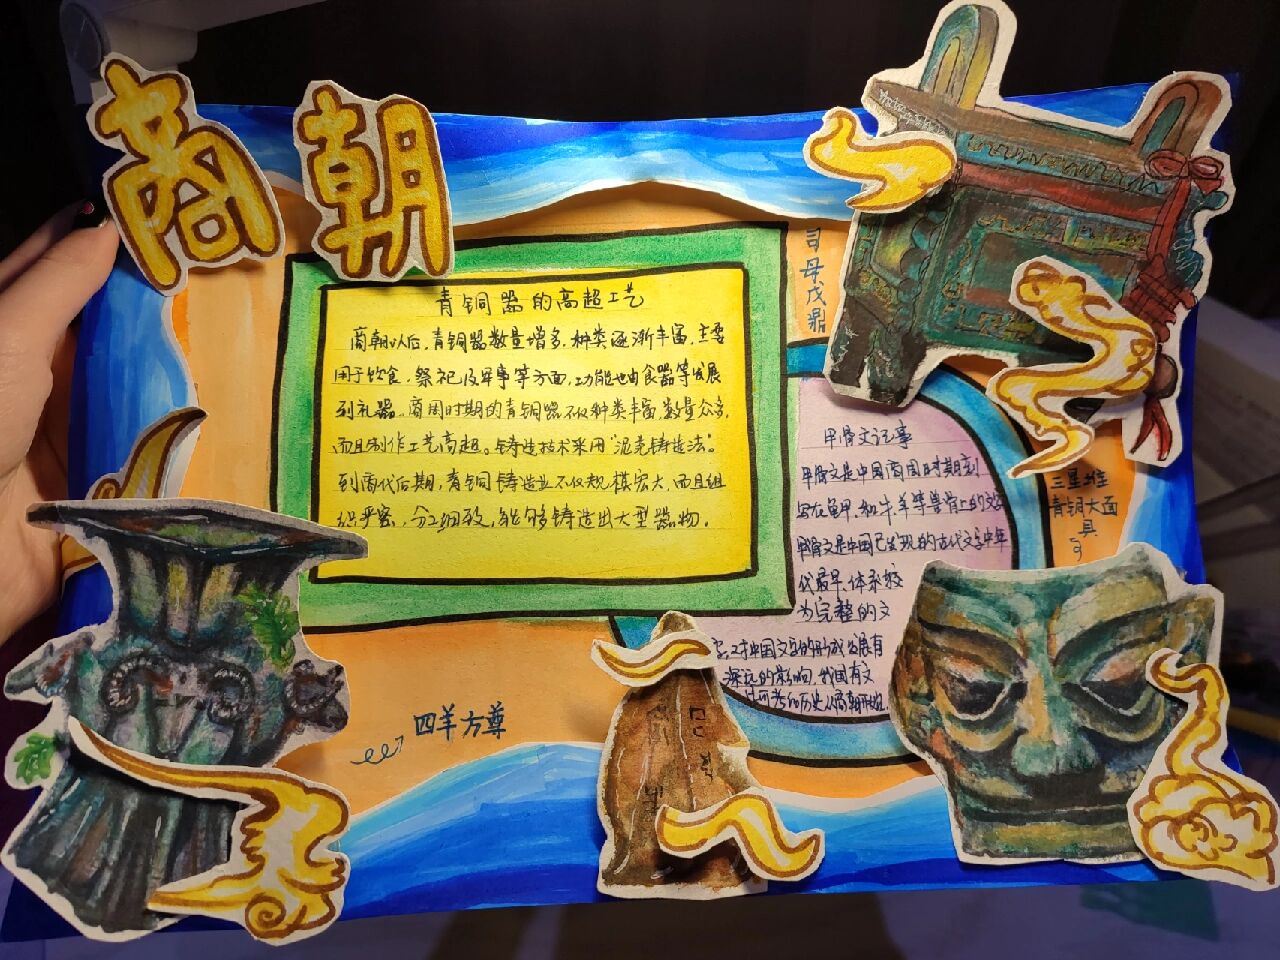 商朝
青铜器的高超工艺
商朝以后,青铜器数量增多,种类逐渐丰富,主要
用于饮食、祭祀及军事等方面,功能也由食器等发展
到礼器。商周时期的青铜器不仅种类丰富,数量众多,
而且制作工艺高超。铸造技术采用"泥范铸造法"。
到商代后期,青铜铸造业不仅规模宏大,而且组
织严密,分工细致,能够铸造出大型器物。
司母戊鼎
甲骨文记事
甲骨文是中国商周时期刻
写在龟甲、和牛羊等兽骨上的文字
甲骨文是中国已发现的古代文字中年
代最早、体系较
为完整的文
字,对中国文字的形成发展有
深远的影响,我国有文
可考的历史从商朝开始
三星堆
青铜大面
具
四羊方尊